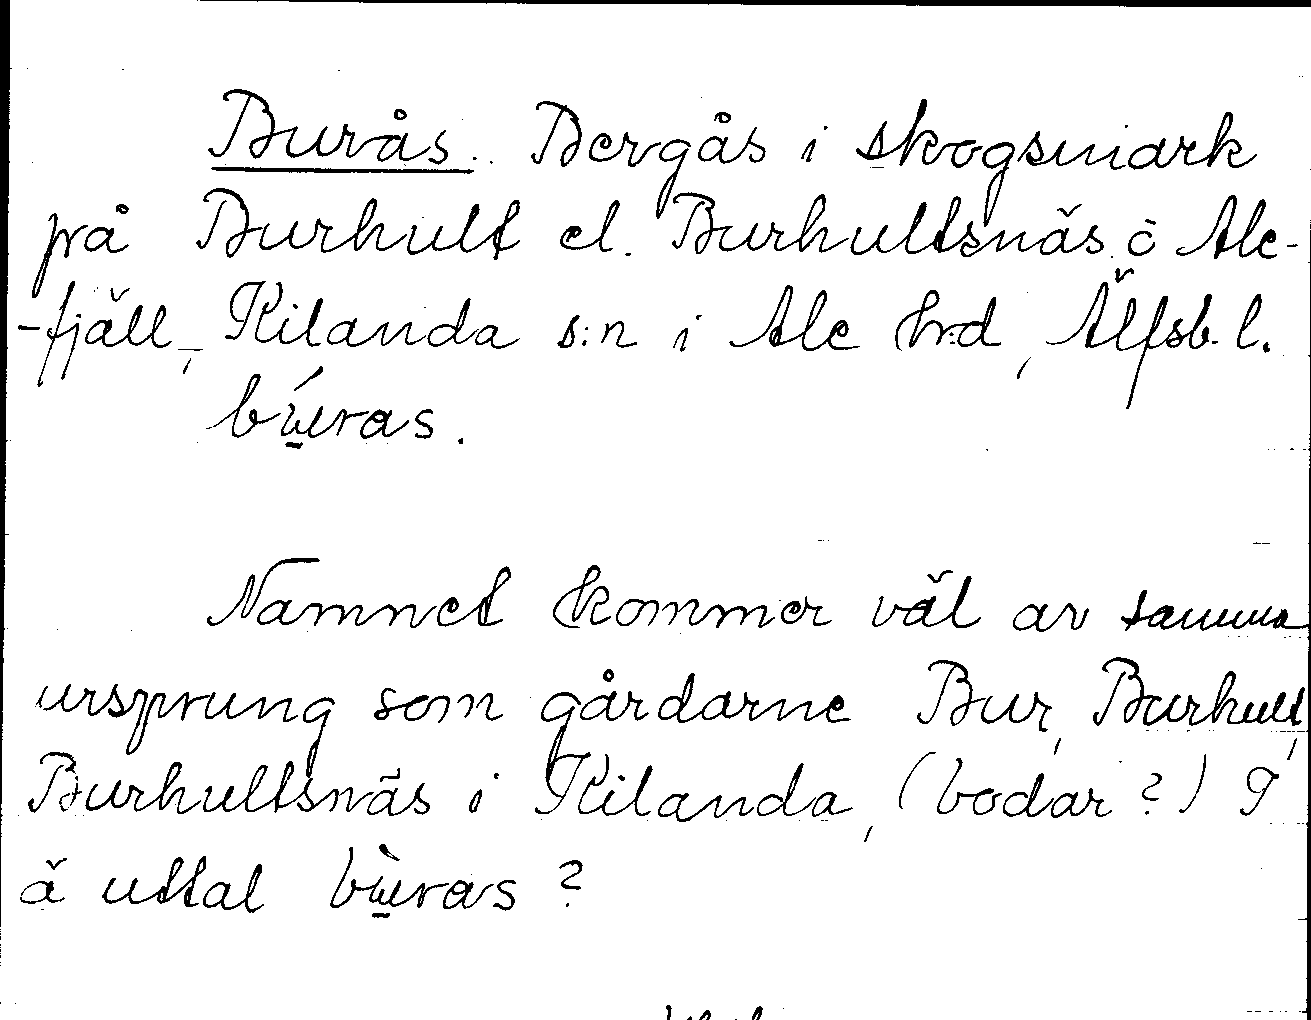 Burås. Bergås i skogsmark
på Burhult el. Burhultsnäs å Ale-
-fjäll, Kilanda s:n i Ale h:d, Älfsb. l.
bú̱ras.
Namnet kommer väl av samma
ursprung som gårdarne Bur, Burhult,
Burhultsnäs i Kilanda, (bodar?)
ä uttal bù̱ras?